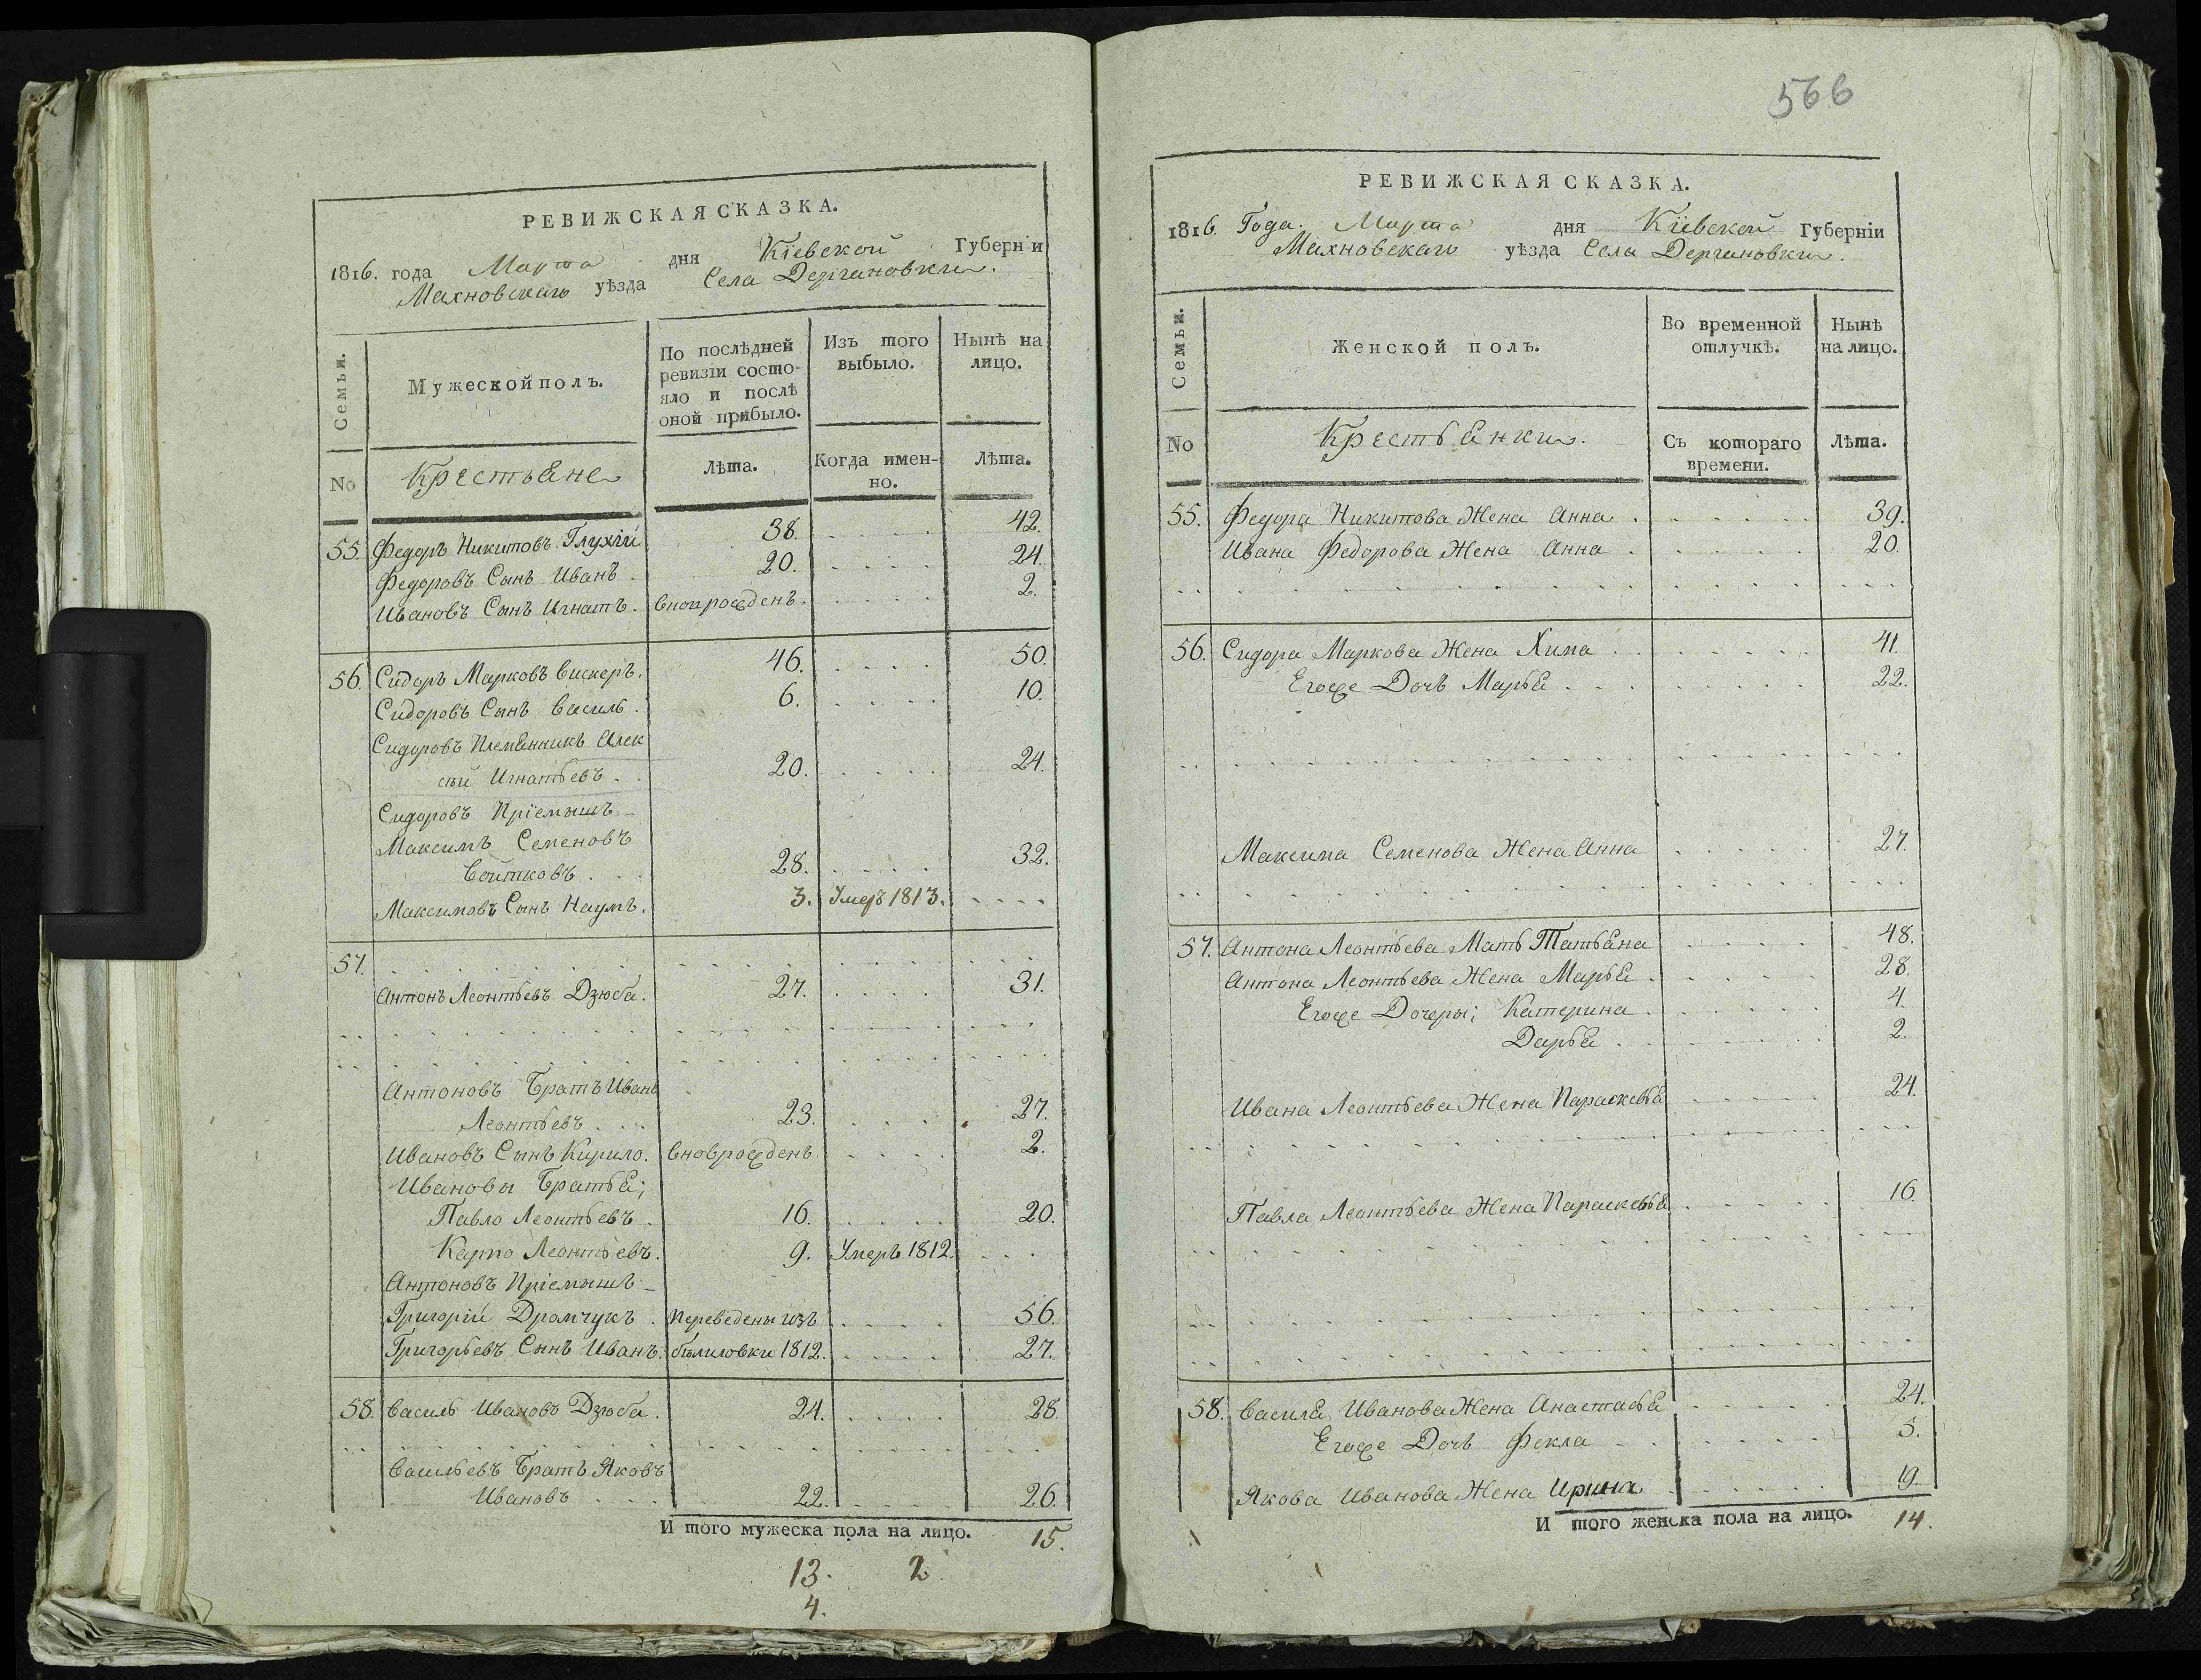 566
РЕВИЖСКАЯ СКАЗКА.
1816. года Марта дня Кіевской Губерніи
Махновскаго уѣзда Села Дергановки.
Семьи.
Мужеской полъ.
По послѣдней ревизіи состо-
яло и послѣ
оной прибыло.
Изъ того
выбыло.
Нынѣ на
лицо.
No
Крестьяне
Лѣта.
Когда имен-
но.
Лѣта.
55. Федоръ Никитовъ Глухій 38. 42.
Федоровъ Сынъ Иванъ. 20. 24.
Ивановъ Сынъ Игнатъ. вноврожденъ. 2.
56. Сидоръ Марковъ Вискеръ. 46. 50.
Сидоровъ Сынъ Василь. 6. 10.
Сидоровъ Племянникъ Алек
сѣй Игнатьевъ. 20. 24.
Сидоровъ Пріемышъ
Максимъ Семеновъ
Войтковъ. 28. 32.
Максимовъ Сынъ Наумъ. 3. Умеръ 1813.
57.
Антонъ Леонтьевъ Дзюба. 27. 31.
Антоновъ Братъ Иванъ
Леонтьевъ 23. 27.
Ивановъ Сынъ Кирило. вноврожденъ 2.
Ивановы Братья;
Павло Леонтьевъ. 16. 20.
Карпо Леонтьевъ. 9. Умеръ 1812.
Антоновъ Пріемышъ
Григорій Драмчукъ. переведены изъ 56.
Григорьевъ Сынъ Иванъ. бѣлиловки 1812. 27.
58. Василь Ивановъ Дзюба. 24. 28.
Васильевъ Братъ Яковъ
Ивановъ 22. 26.
И того мужеска пола на лицо. 15.
13. 2.
4.
РЕВИЖСКАЯ СКАЗКА.
1816. Года. Марта дня Кіевской Губерніи
Махновскаго уѣзда Села Дергановки.
Семьи.
Женской полъ.
Во временной
отлучкѣ.
Нынѣ
на лицо.
No
Крестьянки.
Съ котораго
времени.
Лѣта.
55. Федора Никитова Жена Анна. 39.
Ивана Федорова Жена Анна. 20.
56. Сидора Маркова Жена Хима. 41.
Егоже Дочь Марья. 22.
Максима Семенова Жена Анна 27.
57. Антона Леонтьева Мать Татьяна 48.
Антона Леонтьева Жена Марья. 28.
Егоже Дочеры; Катерина. 4.
Дарья. 2.
Ивана Леонтьева Жена Параскевья 24.
Павла Леонтьева Жена Параскевья 16.
58. Василя Иванова Жена Анастасья 24.
Егоже Дочь Фекла 5.
Якова Иванова Жена Ирина 19.
И того женска пола на лицо. 14.